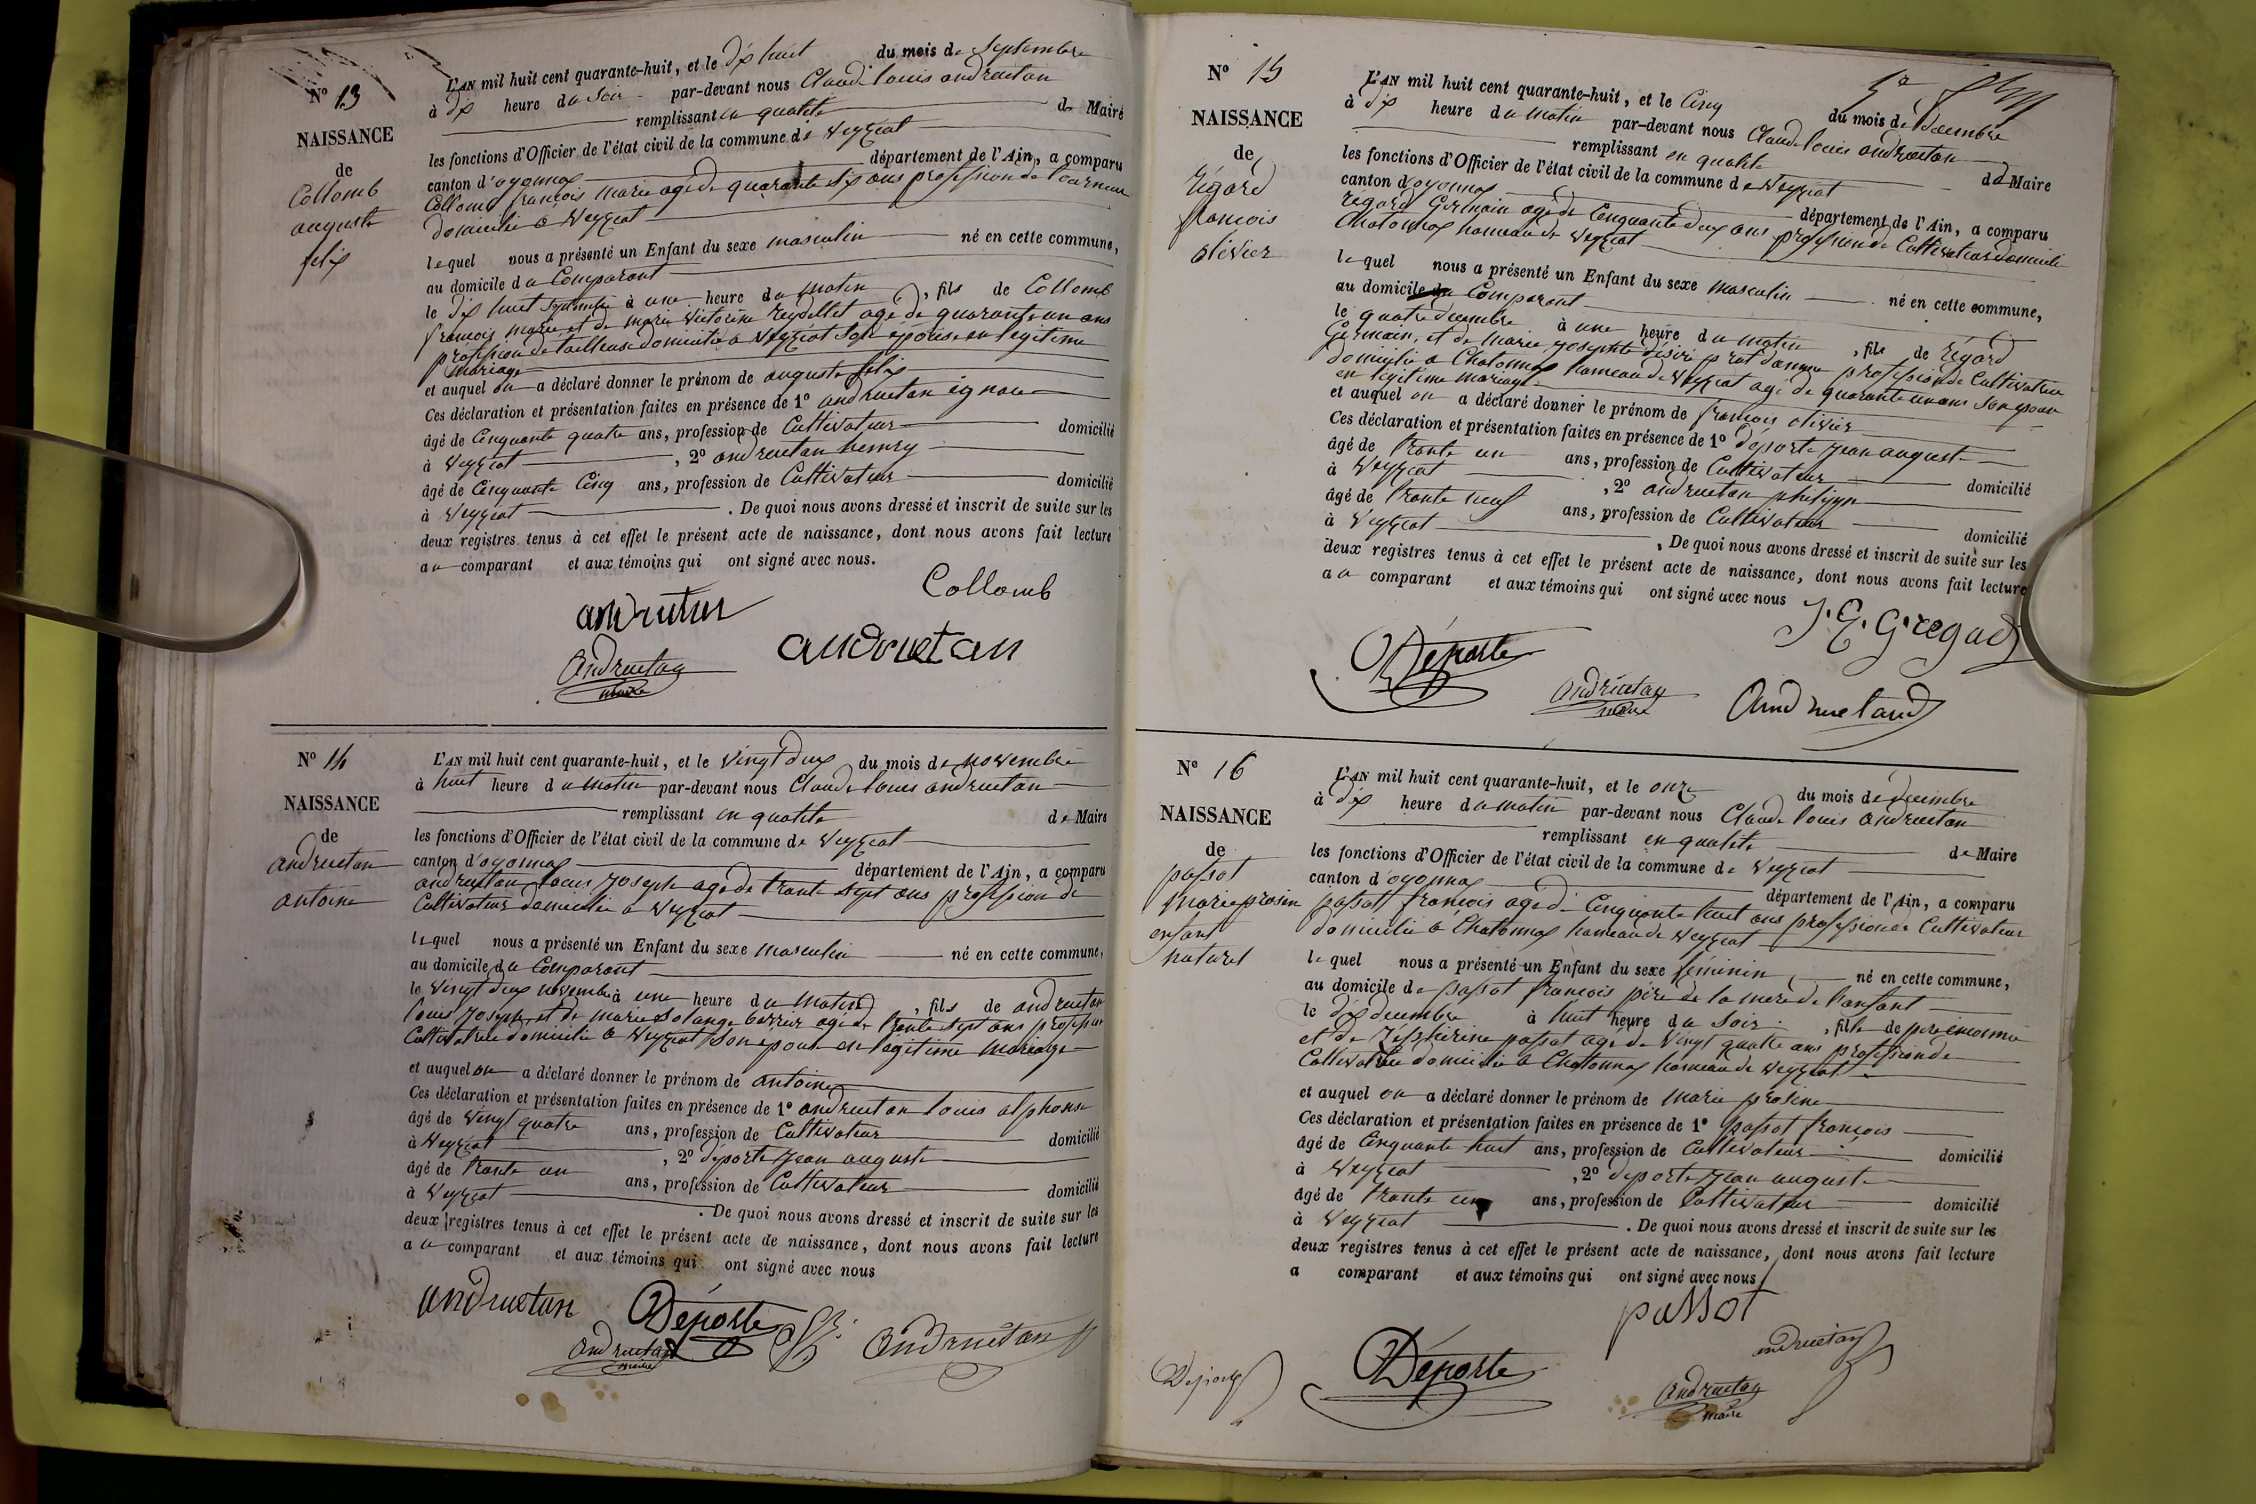 N° 13
NAISSANCE
de
Collomb
auguste
felix
L'AN mil huit cent quarante-huit, et le dix huit du mois de Septembre
à dix heure du Soir par-devant nous Claude louis andruetan
remplissant en qualité de Maire
les fonctions d'Officier de l'état civil de la commune de Veyziat
canton d'oyonnax département de l'Ain, a comparu
Collomb françois marie agé de quarante six ans profession de tourneur
domicilié à Veyziat
lequel nous a présenté un Enfant du sexe masculin né en cette commune,
au domicile du Comparant
le dix huit Septembre à une heure du matin, fils de Collomb
françois marie et de marie Victorine Reydellet agé de quarante un ans
profession de tailleuse domicilié à Veyziat Son épouse en legitime
mariage
et auquel on a déclaré donner le prénom de auguste felix
Ces déclaration et présentation faites en présence de 1° andruetan ignace
âgé de Cinquante quatre ans, profession de Cultivateur domicilié
à Veyziat, 2° andruetan henry
âgé de Cinquante Cinq ans, profession de Cultivateur domicilié
à Veyziat. De quoi nous avons dressé et inscrit de suite sur les
deux registres tenus à cet effet le présent acte de naissance, dont nous avons fait lecture
au comparant et aux témoins qui ont signé avec nous.
Collomb
andruetan
andruetan
andruetan
maire
N° 14
NAISSANCE
de
andruetan
antoine
L'AN mil huit cent quarante-huit, et le Vingt deux du mois de novembre
à huit heure du matin par-devant nous Claude louis andruetan
remplissant en qualité de Maire
les fonctions d'Officier de l'état civil de la commune de Veyziat
canton d'oyonnax département de l'Ain, a comparu
andruetan louis Joseph agé de trante sept ans profession de
Cultivateur domicilié à Veyziat
lequel nous a présenté un Enfant du sexe masculin né en cette commune,
au domicile du Comparant
le Vingt deux novembre à une heure du matin, fils de andruetan
louis Joseph, et de marie Solange berrier agé de trante sept ans profession
Cultivatrice domicilié à Veyziat Son epouse en legitime mariage
et auquel on a déclaré donner le prénom de antoine
Ces déclaration et présentation faites en présence de 1° andruetan louis alphonse
âgé de Vingt quatre ans, profession de Cultivateur domicilié
à Veyziat, 2° déporte Jean auguste
âgé de trante un ans, profession de Cultivateur domicilié
à Veyziat. De quoi nous avons dressé et inscrit de suite sur les
deux registres tenus à cet effet le présent acte de naissance, dont nous avons fait lecture
au comparant et aux témoins qui ont signé avec nous
andruetan Déporte andruetan
andruetan
maire
N° 15
NAISSANCE
de
Régard
francois
olivier
L'AN mil huit cent quarante-huit, et le Cinq du mois de Décembre
à dix heure du matin par-devant nous Claude louis andruetan
remplissant en qualité de Maire
les fonctions d'Officier de l'état civil de la commune de Veyziat
canton d'oyonnax département de l'Ain, a comparu
régard Germain agé de Cinquante deux ans profession de Cultivateur domicilié
Chatonnax hameau de Veyziat
lequel nous a présenté un Enfant du sexe masculin né en cette commune,
au domicile du Comparant
le quatre decembre à une heure du matin, fils de Régard
Germain, et de marie Josephte désiré profession de Cultivatrice
domicilié à Chatonnax hameau de Veyziat agé de quarante un ans Son epouse
en légitime mariage
et auquel on a déclaré donner le prénom de francois olivier
Ces déclaration et présentation faites en présence de 1° déporte Jean auguste
âgé de trante un ans, profession de Cultivateur domicilié
à Veyziat, 2° andruetan philippe
âgé de trante neuf ans, profession de Cultivateur domicilié
à Veyziat. De quoi nous avons dressé et inscrit de suite sur les
deux registres tenus à cet effet le présent acte de naissance, dont nous avons fait lecture
au comparant et aux témoins qui ont signé avec nous
J. E. G. regad
Déporte
andruetan
maire
Andruetand
N° 16
NAISSANCE
de
passot
marie prosine
enfant
naturel
L'AN mil huit cent quarante-huit, et le onze du mois de decembre
à dix heure du matin par-devant nous Claude louis andruetan
remplissant en qualité de Maire
les fonctions d'Officier de l'état civil de la commune de Veyziat
canton d'oyonnax département de l'Ain, a comparu
passot francois agé de Cinquante huit ans profession de Cultivateur
domicilié à Chatonnax hameau de Veyziat
lequel nous a présenté un Enfant du sexe féminin, né en cette commune,
au domicile de passot francois père de la mère de l'enfant
le dix decembre à huit heure du Soir, fille de père inconnu
et de Zéphirine passot agé de Vingt quatre ans profession de
Cultivatrice domicilié à Chatonnax hameau de Veyziat
et auquel on a déclaré donner le prénom de marie prosine
Ces déclaration et présentation faites en présence de 1° passot francois
âgé de Cinquante huit ans, profession de Cultivateur domicilié
à Veyziat, 2° deporte Jean auguste
âgé de trante un ans, profession de Cultivateur domicilié
à Veyziat. De quoi nous avons dressé et inscrit de suite sur les
deux registres tenus à cet effet le présent acte de naissance, dont nous avons fait lecture
a comparant et aux témoins qui ont signé avec nous
passot
andruetan
Deporte
Déporte
andruetan
maire